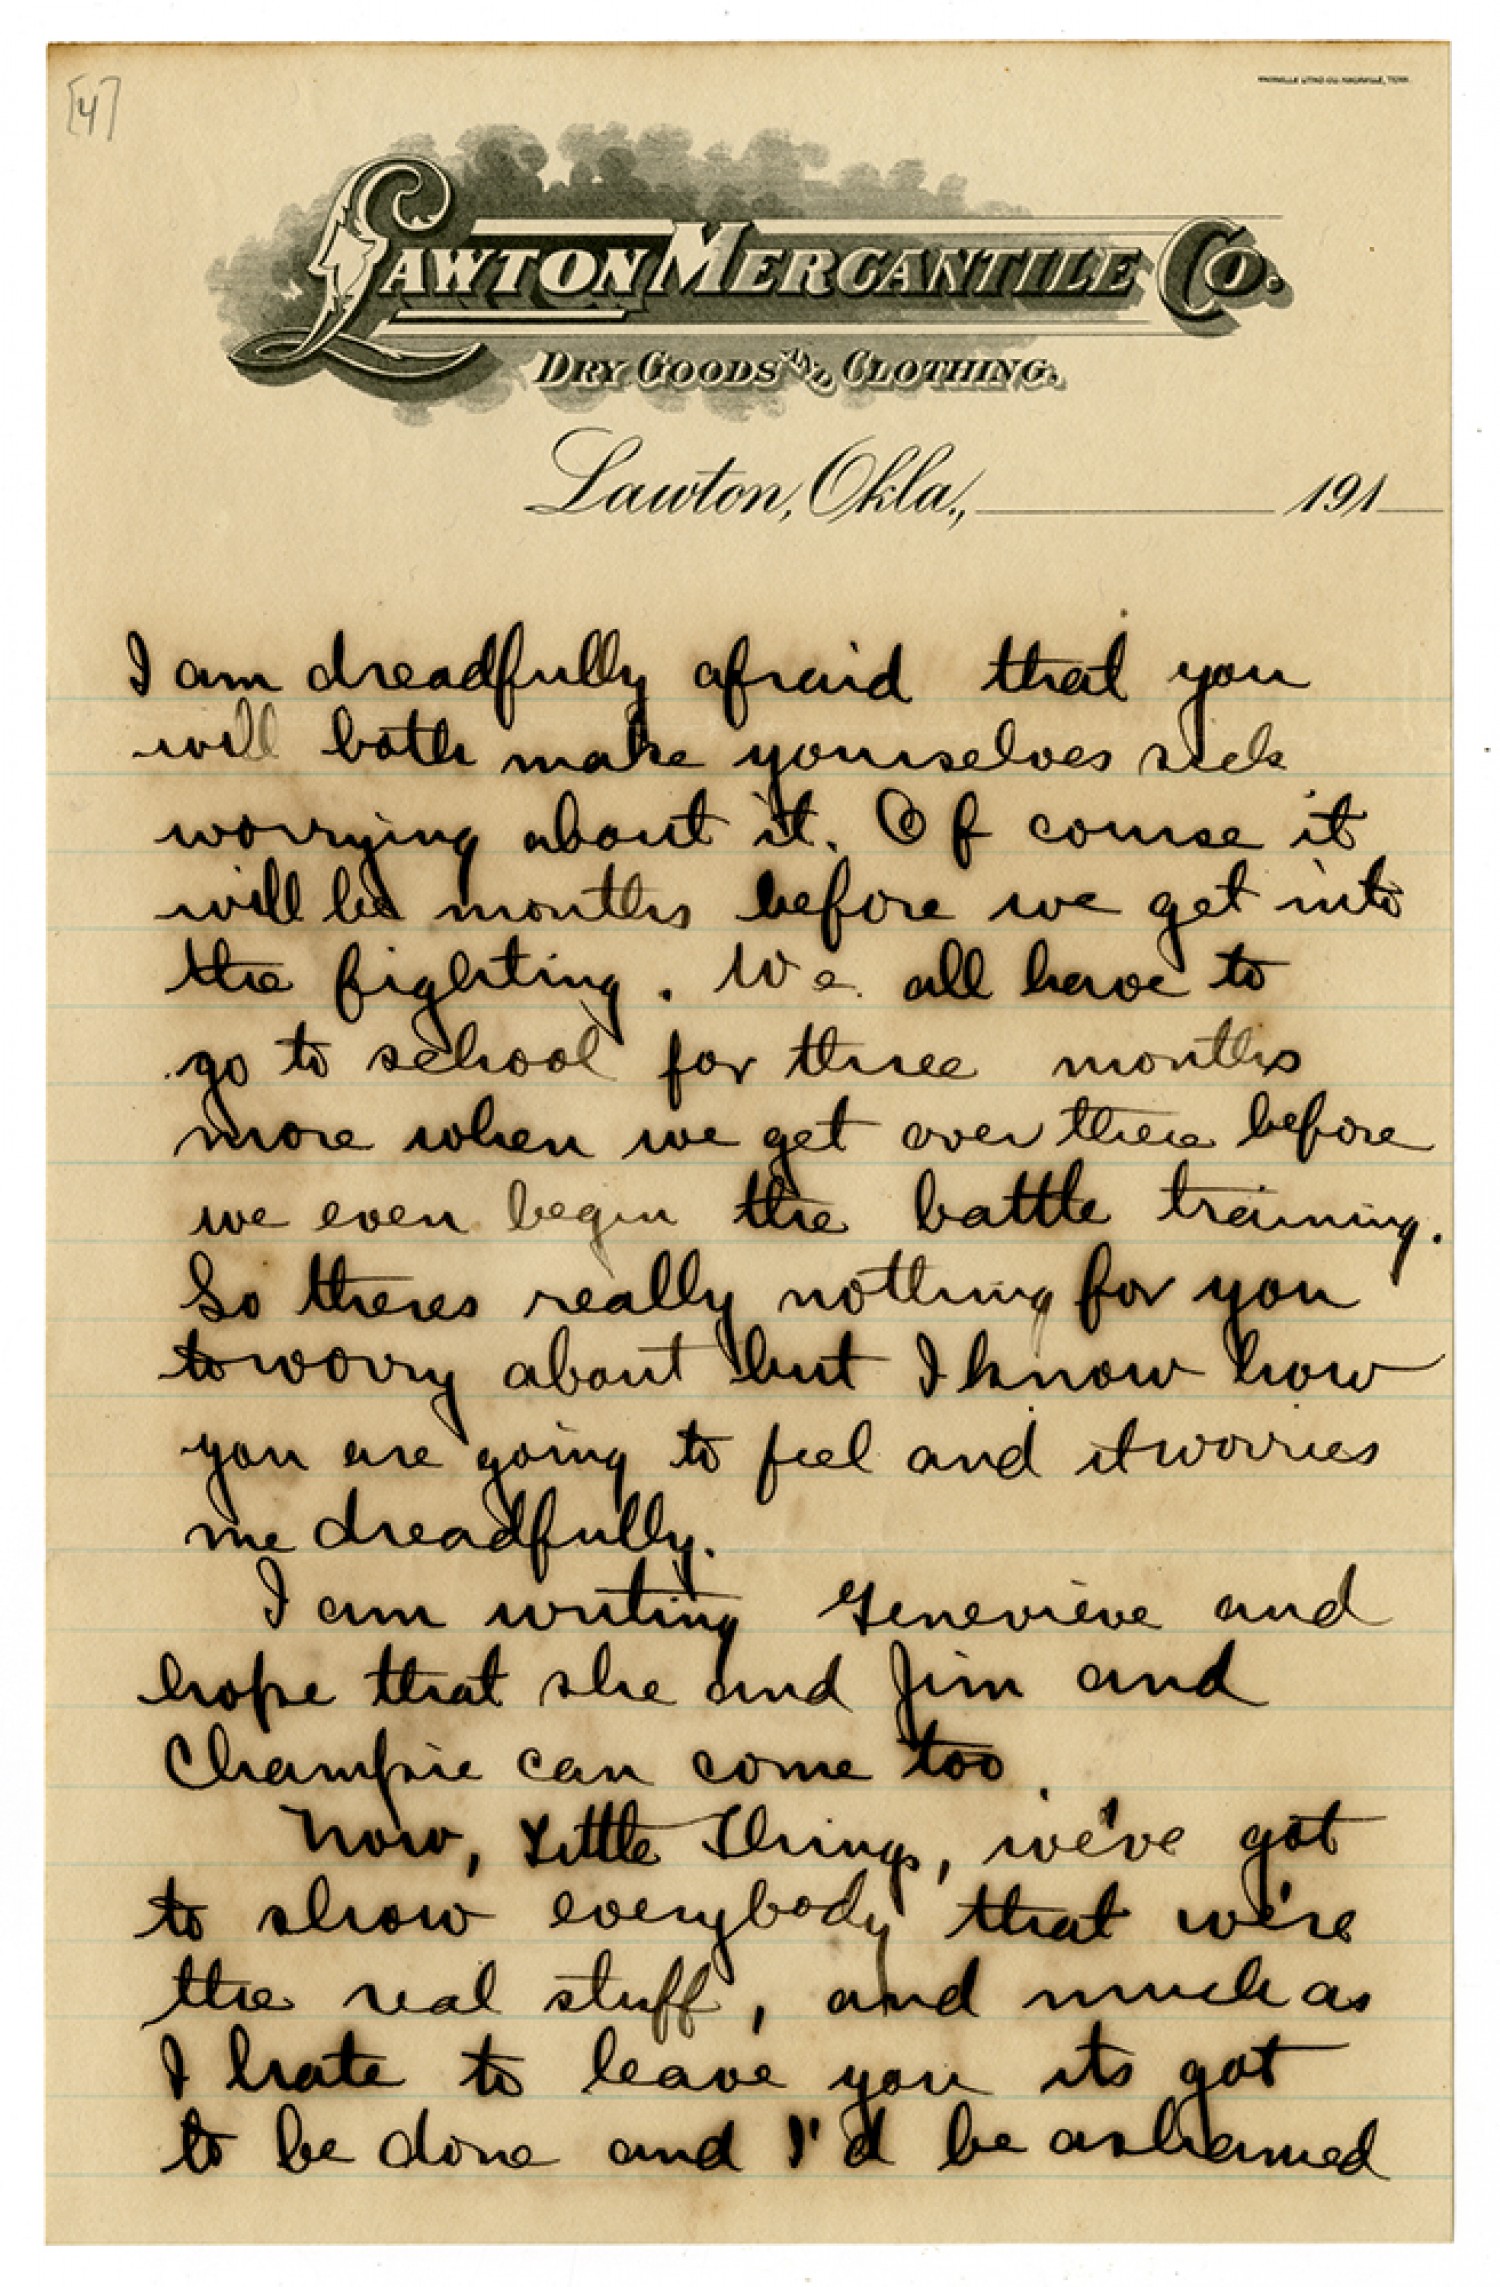 [4]
LAWTON MERCANTILE CO.
DRY GOODS AND CLOTHING.
Lawton, Okla., 191
I am dreadfully afraid that you
will both make yourselves sick
worrying about it. Of course it
will be months before we get into
the fighting. We all have to
go to school for three months
more when we get over there before
we even begin the battle training.
So theres really nothing for you
to worry about but I know how
you are going to feel and it worries
me dreadfully.
I am writing Genevieve and
hope that she and Jim and
Champie can come too.
Now, Little Things, we've got
to show everybody that we're
the real stuff, and much as
I hate to leave you its got
to be done and I'd be ashamed